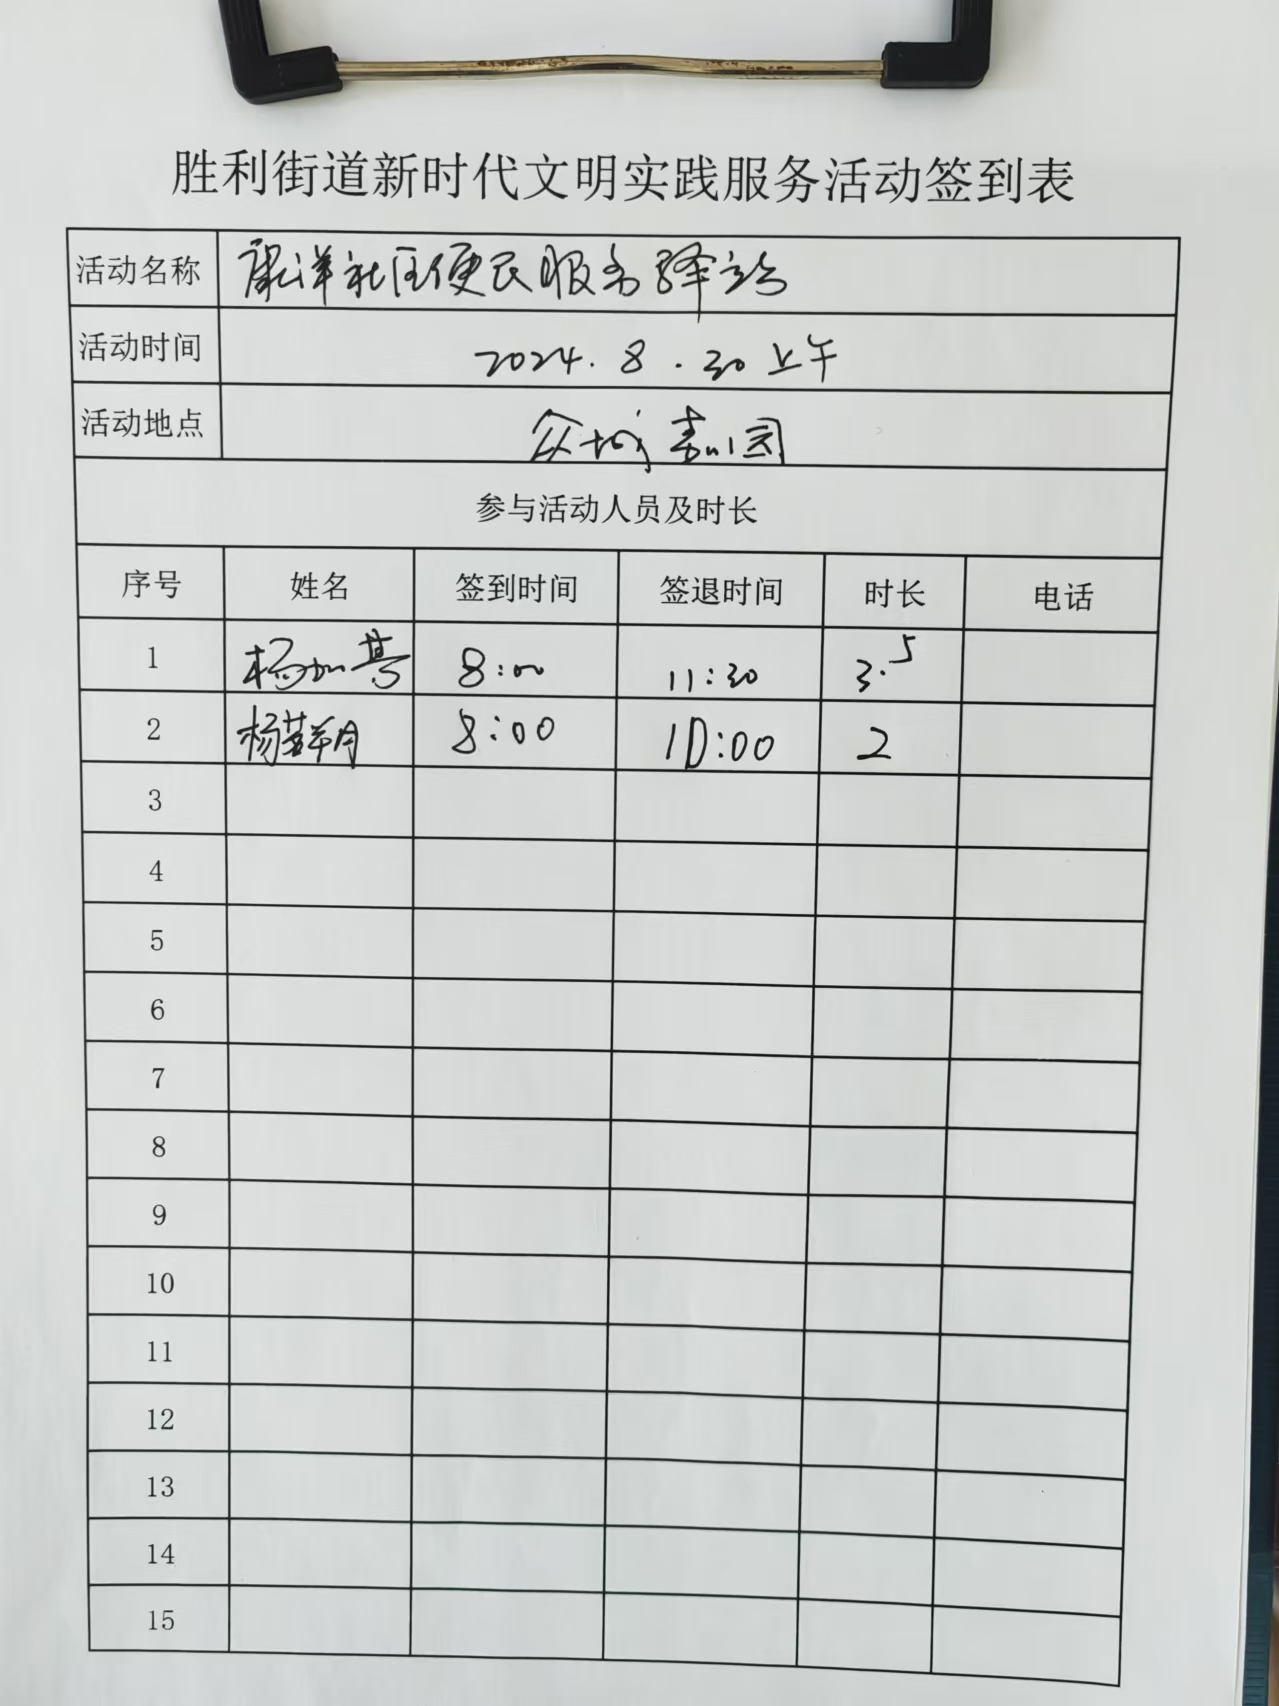 胜利街道新时代文明实践服务活动签到表
活动名称 康洋社区便民服务驿站
活动时间 2024.8.30上午
活动地点 众城嘉园
参与活动人员及时长
序号 姓名 签到时间 签退时间 时长 电话
1 杨 8:00 11:30 3.5
2 杨 8:00 10:00 2
3
4
5
6
7
8
9
10
11
12
13
14
15